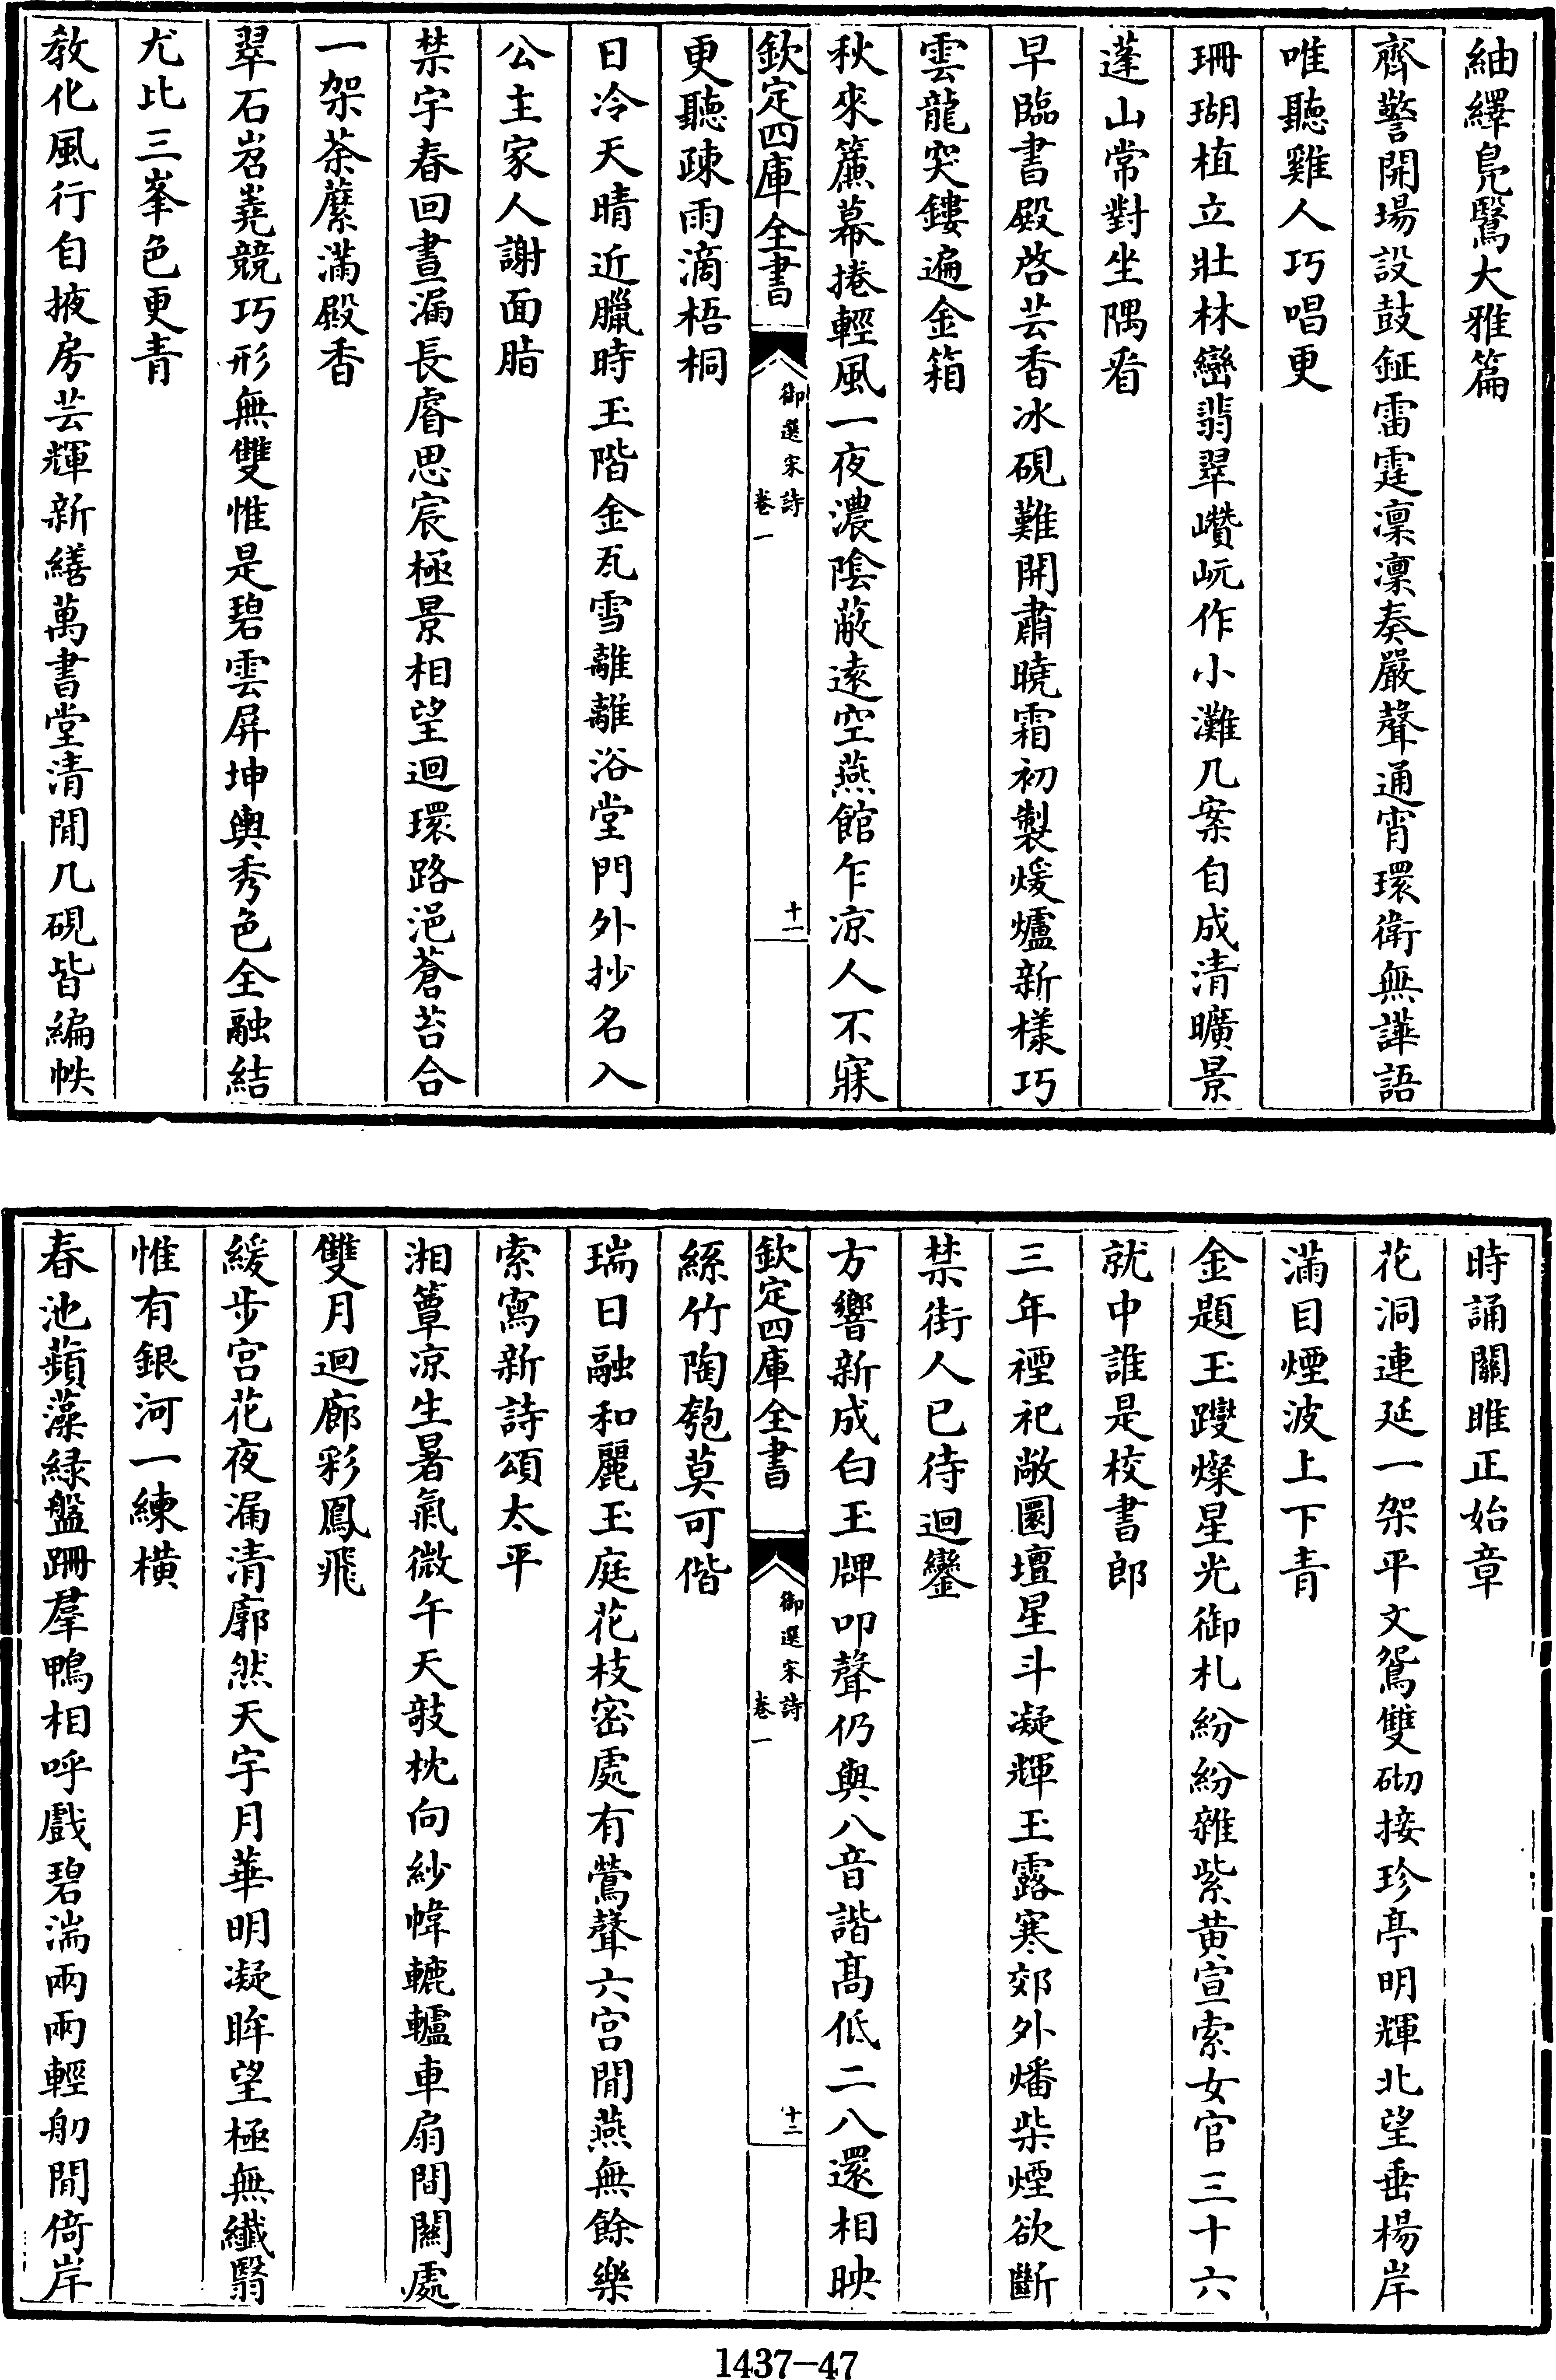 紬繹鳧鷖大雅篇
齊警開場設鼓鉦雷霆凛凛奏嚴聲通宵環衛無譁語
唯聽雞人巧唱更
珊瑚植立壯林巒翡翠巑岏作小灘几案自成清曠景
蓬山常對坐隅看
早臨書殿啓芸香冰硯難開肅曉霜初製煖爐新樣巧
雲龍突鏤遍金箱
秋來簾幕捲輕風一夜濃陰蔽遠空燕館乍凉人不寐
欽定四庫全書
御選宋詩
卷一
十一
更聽疎雨滴梧桐
日冷天晴近臘時玉階金瓦雪離離浴堂門外抄名入
公主家人謝面脂
禁宇春回晝漏長睿思宸極景相望迴環路浥蒼苔合
一架荼蘼滿殿香
翠石岧嶤競巧形無雙惟是碧雲屏坤輿秀色全融結
尤比三峯色更青
教化風行自掖房芸輝新繕萬書堂清閒几硯皆編帙
時誦關雎正始章
花洞連延一架平文鴛雙砌接珍亭明輝北望垂楊岸
滿目煙波上下青
金題玉躞燦星光御札紛紛雜紫黄宣索女官三十六
就中誰是校書郎
三年禋祀敞圜壇星斗凝輝玉露寒郊外燔柴煙欲斷
禁街人已待迴鑾
方響新成白玉牌叩聲仍與八音諧髙低二八還相映
欽定四庫全書
御選宋詩
卷一
十二
絲竹陶匏莫可偕
瑞日融和麗玉庭花枝密處有鶯聲六宫閒燕無餘樂
索寫新詩頌太平
湘簟凉生暑氣微午天敧枕向紗幃轆轤車扇閒關處
雙月迴廊彩鳳飛
緩步宫花夜漏清廓然天宇月華明凝眸望極無纖翳
惟有銀河一練橫
春池蘋藻緑盤跚羣鴨相呼戲碧湍兩兩輕舠閒倚岸
1437-47